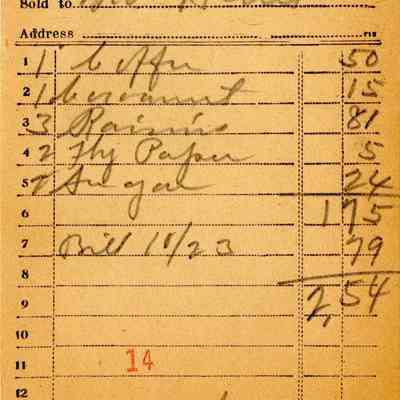 Sold to
Address
1 1 Coffee 50
2 1 Cocoanut 15
3 3 Raisins 81
4 2 Fly Paper 5
5 2 Sugar 24
6 1 75
7 Bill 10/23 79
8
9 2,54
10
11 14
12